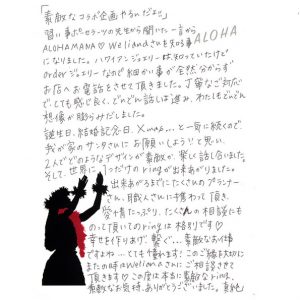 「素敵なコラボ企画やるんだよ♡」
習い事ポセラーツの先生から聞いた一言から
ALOHAMANA♡Welinaさんを知る事
ALOHA
になりました。ハワイアンジュエリーは知っていたけど
orderジュエリーなので細かい事が全然分からず
お店へお電話をさせて頂きました。丁寧なご対応
でとても感じ良く、でんでん話しは進み、わたしもでんでん
想像が膨らみだしました。
誕生日、結婚記念日、Xmas...と一気に続くので、
我が家のサンタさんにお願いしよう!と思い、
2人でどのようなデザインが素敵か、楽しく話し合いました。
そして、世界に1つだけのringが出来あがりました。
出来あがるまでにたくさんのプランナー
さん、職人さんに携わって頂き、
愛情たっぷり、たくさんの相談にも
のって頂いてのringは格別です♡
幸せを作りあげ、繋ぐ...素敵なお仕事
ですよね...とても憧れます。このご縁を大切に
またの時はWelinaさんにご相談させて
頂きます♡この度は本当に素敵なring、
素敵なお気持、ありがとうございました。